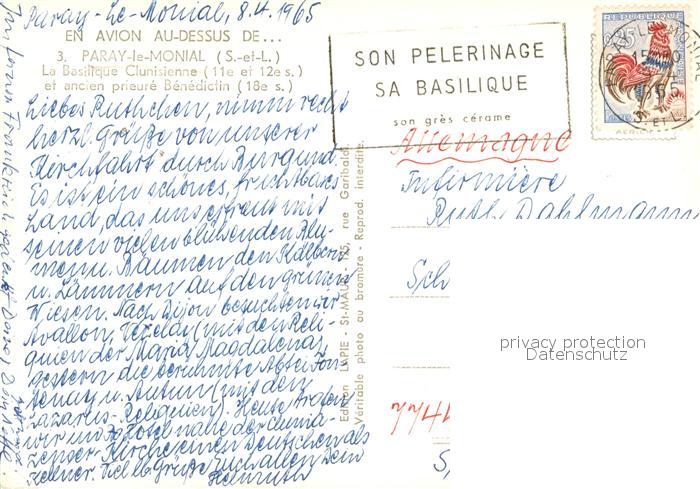 Paray-Le-Monial, 8.4.1965
EN AVION AU-DESSUS DE...
3. PARAY-le-MONIAL (S.-et-L.)
La Basilique Clunisienne (11e et 12e s.)
et ancien prieuré Bénédictin (18e s.)
Liebes Ruthchen, nimm recht
herzl. Grüße von unserer
Kirchfahrt durch Burgund.
Es ist ein schönes, fruchtbares
Land, das uns erfreut mit
seinen vielen blühenden Blu-
men u. Bäumen, den Kälbern
u. Lämmern auf den grünen
Wiesen. Nach Dijon besuchten wir
Avallon, Vezelay (mit den Reli-
quien der Maria Magdalena,
gestern die berühmte Abtei Fon-
tenay u. Autun (mit den
Lazarus-Reliquien). Heute
wir im Hotel nahe der Clunia-
zenser-Kirche einen Deutschen als
Kellner. Viel lb. Grüße Euch allen Dein
Helmuth
Edition LAPIE - ST-MAUR - 125, rue Garibaldi
Véritable photo au bromure - Reprod. interdite.
SON PELERINAGE
SA BASILIQUE
son grès cérame
REPUBLIQUE
65
S. ET L.
Allemagne
Infirmière
Ruth Dahlmann
Sch
privacy protection
Datenschutz